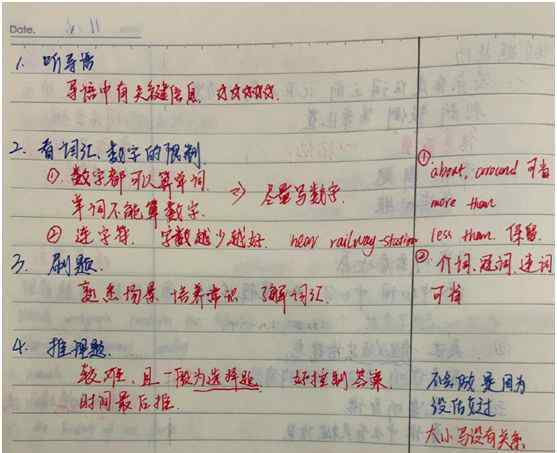 Date.
1. 听导语
导语中有关键信息. ☆☆☆☆☆.
2. 看词汇、数字的限制
①. 数字都可以算单词. ⇒ 尽量写数字.
单词不能算数字.
② 连字符. 字数越少越好. near railway-station
3. 刷题.
熟悉场景 培养常识 了解词汇.
4. 推理题.
较难, 且一般为选择题. 好控制答案.
时间最后推.
① about, around 可省
more than
less than. 保留.
② 介词、冠词、连词
可省
不会做是因为
没估过
大小写没有关系.